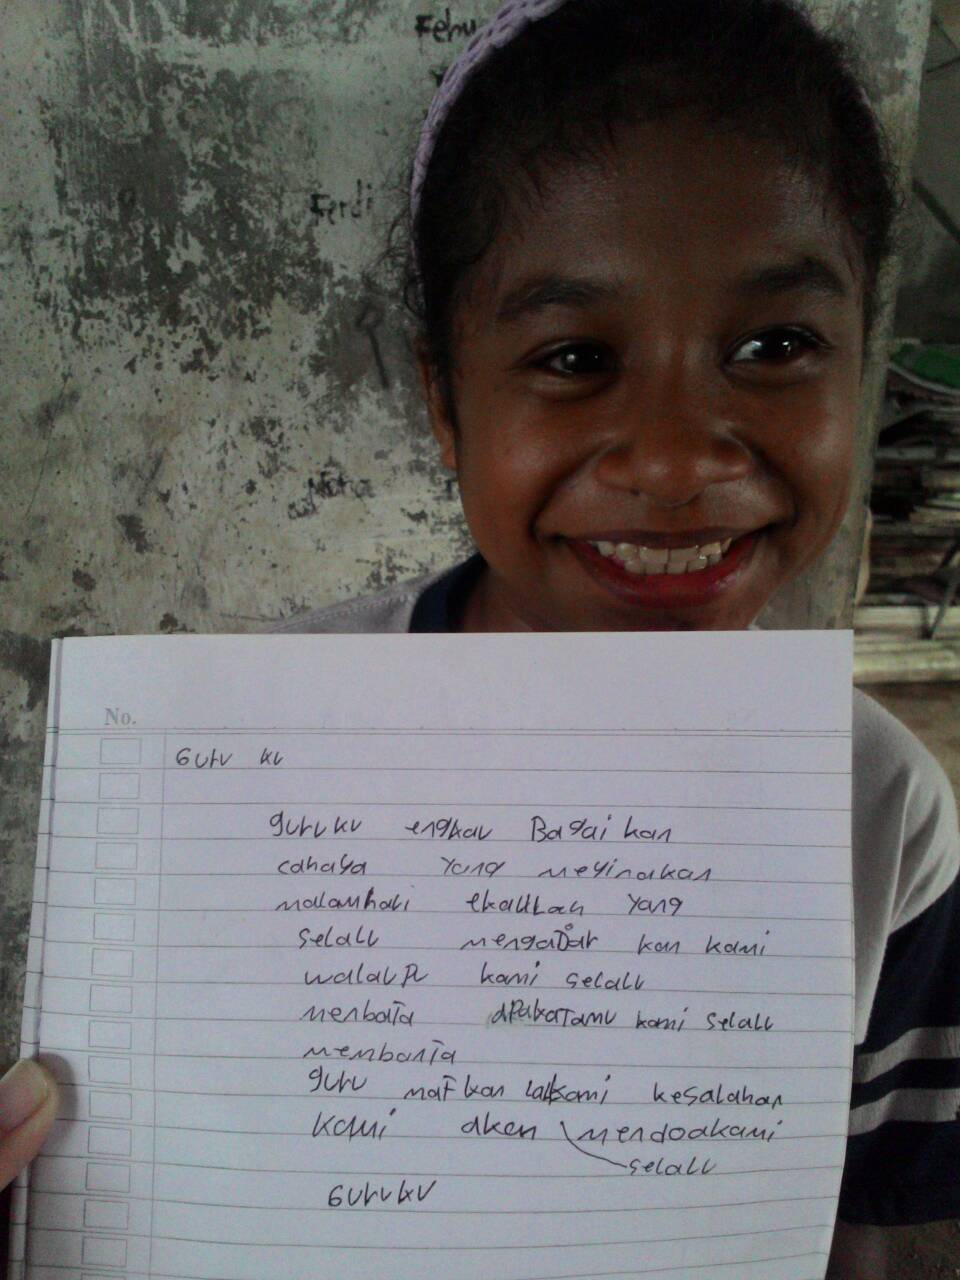 Febu
Ferdi
No.
Guru ku
guruku engkau Bagai kan
cahaya yang meyinakan
malamhari ekaulah yang
selalu mengaDar kan kami
walaupu kami selalu
menbata apakatamu kami selalu
membanta
guru mafkan kami kesalahan
kami aken mendoakami
selalu
Guruku